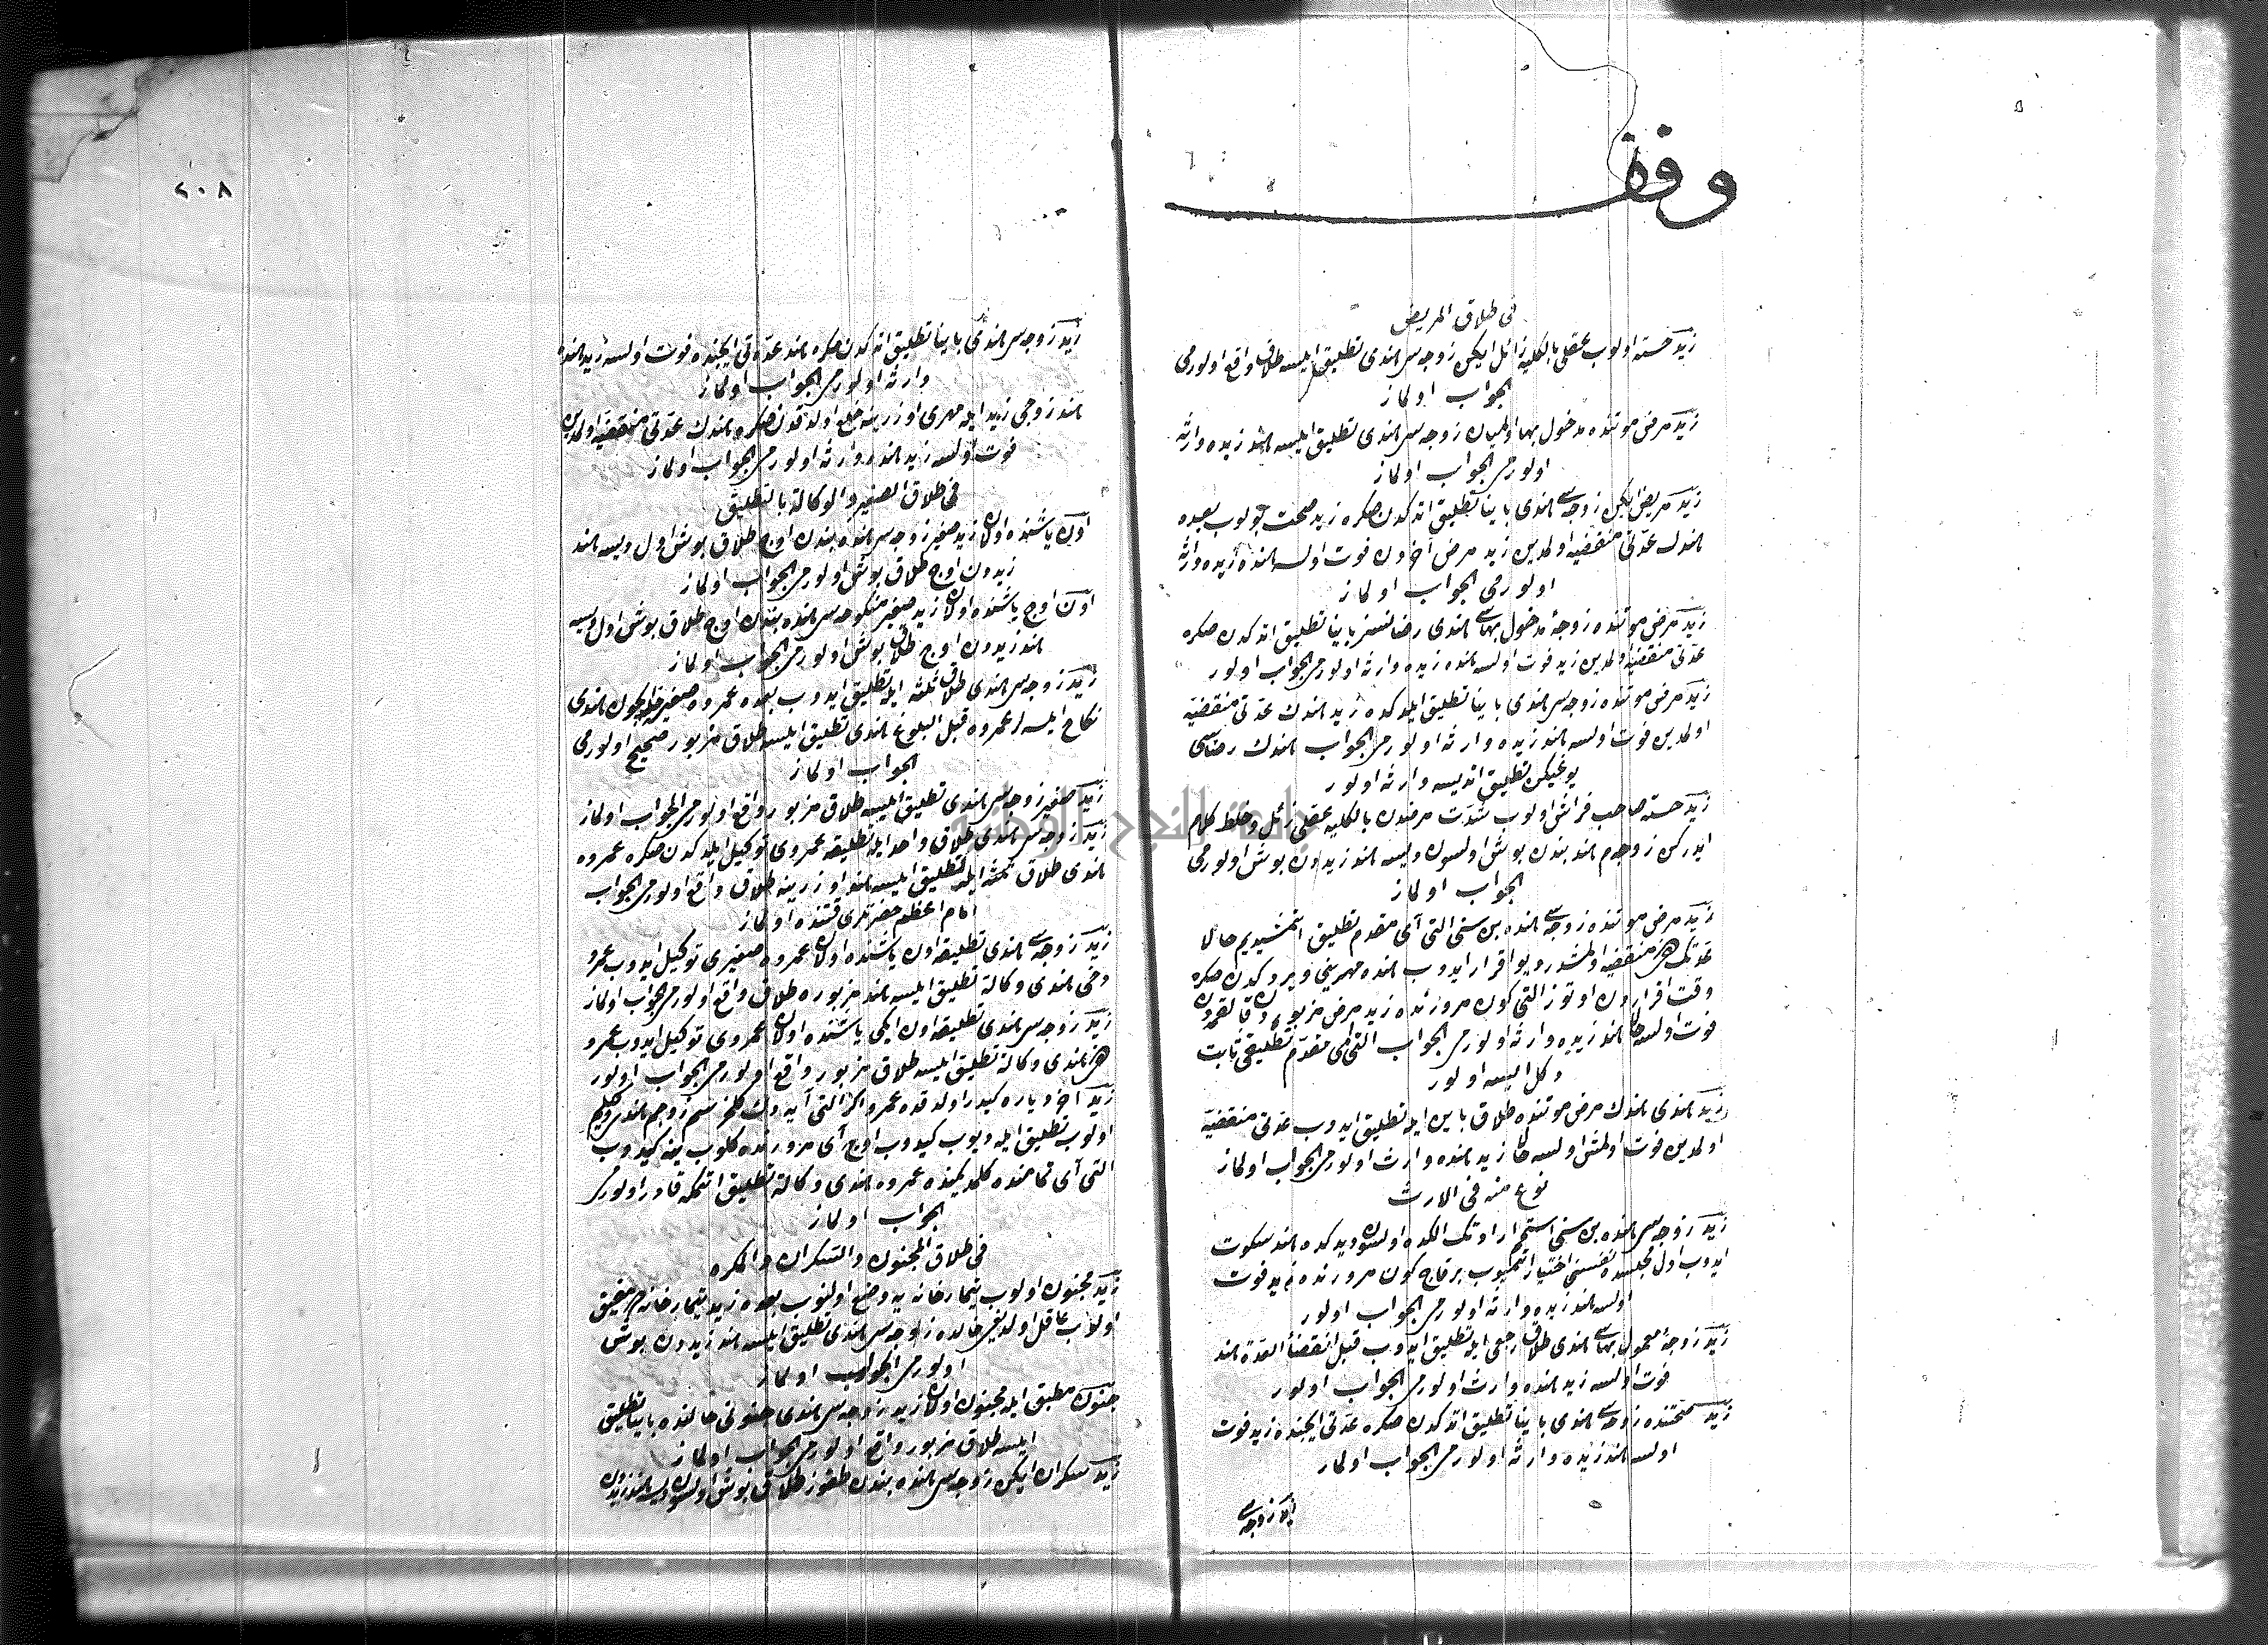 وقف
فى طلاق المريض
زيد خسته اولوب عقلى بالكليه زائل ايكن زوجه سى هندى تطليق ايلسه طلاق واقع اولورمى
الجواب اولماز
زيد مرض موتنده مدخول بها اولميان زوجه سى هندى تطليق ايلسه هند زيده وارثه
اولورمى الجواب اولماز
زيد مريض ايكن زوجه سى هندى باينا تطليق اتدكدن صكره زيد صحت بولوب بعده
هندك عدتى منقضيه اولمدين زيد مرض اخردن فوت اولسه هنده زيده وارثه
اولورمى الجواب اولماز
زيد مرض موتنده زوجۀ مدخول بهاسى هندى رضاسنسز باينا تطليق اتدكدن صكره
عدتى منقضيه اولمدين زيد فوت اولسه هنده زيده وارثه اولورمى الجواب اولور
زيد مرض موتنده زوجه سى هندى باينا تطليق ايلدكده زيد هندك عدتى منقضيه
اولمدين فوت اولسه هند زيده وارثه اولورمى الجواب هندك رضاسى
يوغيكن تطليق اتديسه وارثه اولور
زيد خسته صاحب فراش اولوب شدت مرضندن بالكليه عقلى زائل و خلط كلام
ايدركن زوجه م هند بندن بوش اولسون ديسه هند زيددن بوش اولورمى
الجواب اولماز
زيد مرض موتنده زوجه سى هنده بن سنى التى آى مقدم تطليق اتمشيديم حالا
عدتك منقضيه اولمشدر ديو اقرار ايدوب هنده مهرينى ويردكدن صكره
وقت اقراردن اوتوز التى كون مرورنده زيد مرض مزبوردن
فوت اولسه هند زيده وارثه اولورمى الجواب التى آى مقدم تطليقى ثابت
دكل ايسه اولور
زيد هندى هندك مرض موتنده طلاق باين ايله تطليق ايدوب عدتى منقضيه
اولمدين فوت اولمش اولسه زيد هنده وارث اولورمى الجواب اولماز
نوع منه فى الارث
زيد زوجه سى هنده بن سنى استمرار اوتك الكده اولسون ديدكده هند سكوت
ايدوب اول مجلسده نفسنى اختيار اتميوب برقاج كون مرورنده زيد فوت
اولسه هند زيده وارثه اولورمى الجواب اولور
زيد زوجۀ معمول بهاسى هندى طلاق رجعى ايله تطليق ايدوب قبل انقضاء العدة هند
فوت اولسه زيد هنده وارث اولورمى الجواب اولور
زيد صحتنده زوجه سى هندى باينا تطليق اتدكدن صكره عدتى ايچنده زيد فوت
اولسه هند زيده وارثه اولورمى الجواب اولماز
زيد زوجه سى
٢٠٨
زيد زوجه سى هندى باينا تطليق اتدكدن صكره هند عدتى ايچنده فوت اولسه زيد هنده
وارثه اولورمى الجواب اولماز
هند زوجى زيد ايله مهرى اوزرينه خلع اولدقدن صكره هندك عدتى منقضيه اولمدين
فوت اولسه زيد هنده وارثه اولورمى الجواب اولماز
فى طلاق الصغير والوكالة بالتطليق
اون ياشنده اولان زيد صغير زوجه سى هنده بندن اوچ طلاق بوش اول ديسه هند
زيددن اوچ طلاق بوش اولورمى الجواب اولماز
اون اوچ ياشنده اولان زيد صغير منكوحه سى هنده بندن اوچ طلاق بوش اول ديسه
هند زيددن اوچ طلاق بوش اولورمى الجواب اولماز
زيد زوجه سى هندى طلاق ثلثه ايله تطليق ايدوب بعده عمرو صغير حله ايچون هندى
نكاح ايلسه عمرو قبل البلوغ هندى تطليق ايلسه طلاق مزبور صحيح اولورمى
الجواب اولماز
زيد صغير زوجه سى هندى تطليق ايلسه طلاق مزبور واقع اولورمى الجواب اولماز
زيد زوجه سى هندى طلاق واحد ايله تطليقه عمروى توكيل ايلدكدن صكره عمروه
هندى طلاق ثلثه ايله تطليق ايلسه هند اوزرينه طلاق واقع اولورمى الجواب
امام اعظم حضرتلرى قتنده اولماز
زيد زوجه سى هندى تطليقه اون ياشنده اولان عمرو صغيرى توكيل ايدوب عمرو
دخى هندى وكالة تطليق ايلسه هند مزبوره طلاق واقع اولورمى الجواب اولماز
زيد زوجه سى هندى تطليقه اون ايكى ياشنده اولان عمروى توكيل ايدوب عمرو
هندى وكالة تطليق ايلسه طلاق مزبور واقع اولورمى الجواب اولور
زيد آخر دياره كيدر اولدقده عمروه اكر التى آيه دك كلمزسم زوجه م هندى وكيلم
اولوب تطليق ايله ديوب كيدوب اوچ آى مرورنده كلوب ينه كيدوب
التى آى تمامنده كلمديكنده عمرو هندى وكالة تطليق اتمكه قادر اولورمى
الجواب اولماز
فى طلاق المجنون والسكران والمكره
زيد مجنون اولوب تيمارخانه يه وضع اولنوب بعده زيد تيمارخانه ده مفيق
اولوب عاقل اولديغى حالده زوجه سى هندى تطليق ايلسه هند زيددن بوش
اولورمى الجواب اولماز
جنون مطبق ايله مجنون اولان زيد زوجه سى هندى جنونى حالنده باينا تطليق
ايلسه طلاق مزبور واقع اولورمى الجواب اولماز
زيد سكران ايكن زوجه سى هنده بندن طقوز طلاق بوش اولسون ديسه هند زيددن
جامعة النجاح الوطنية